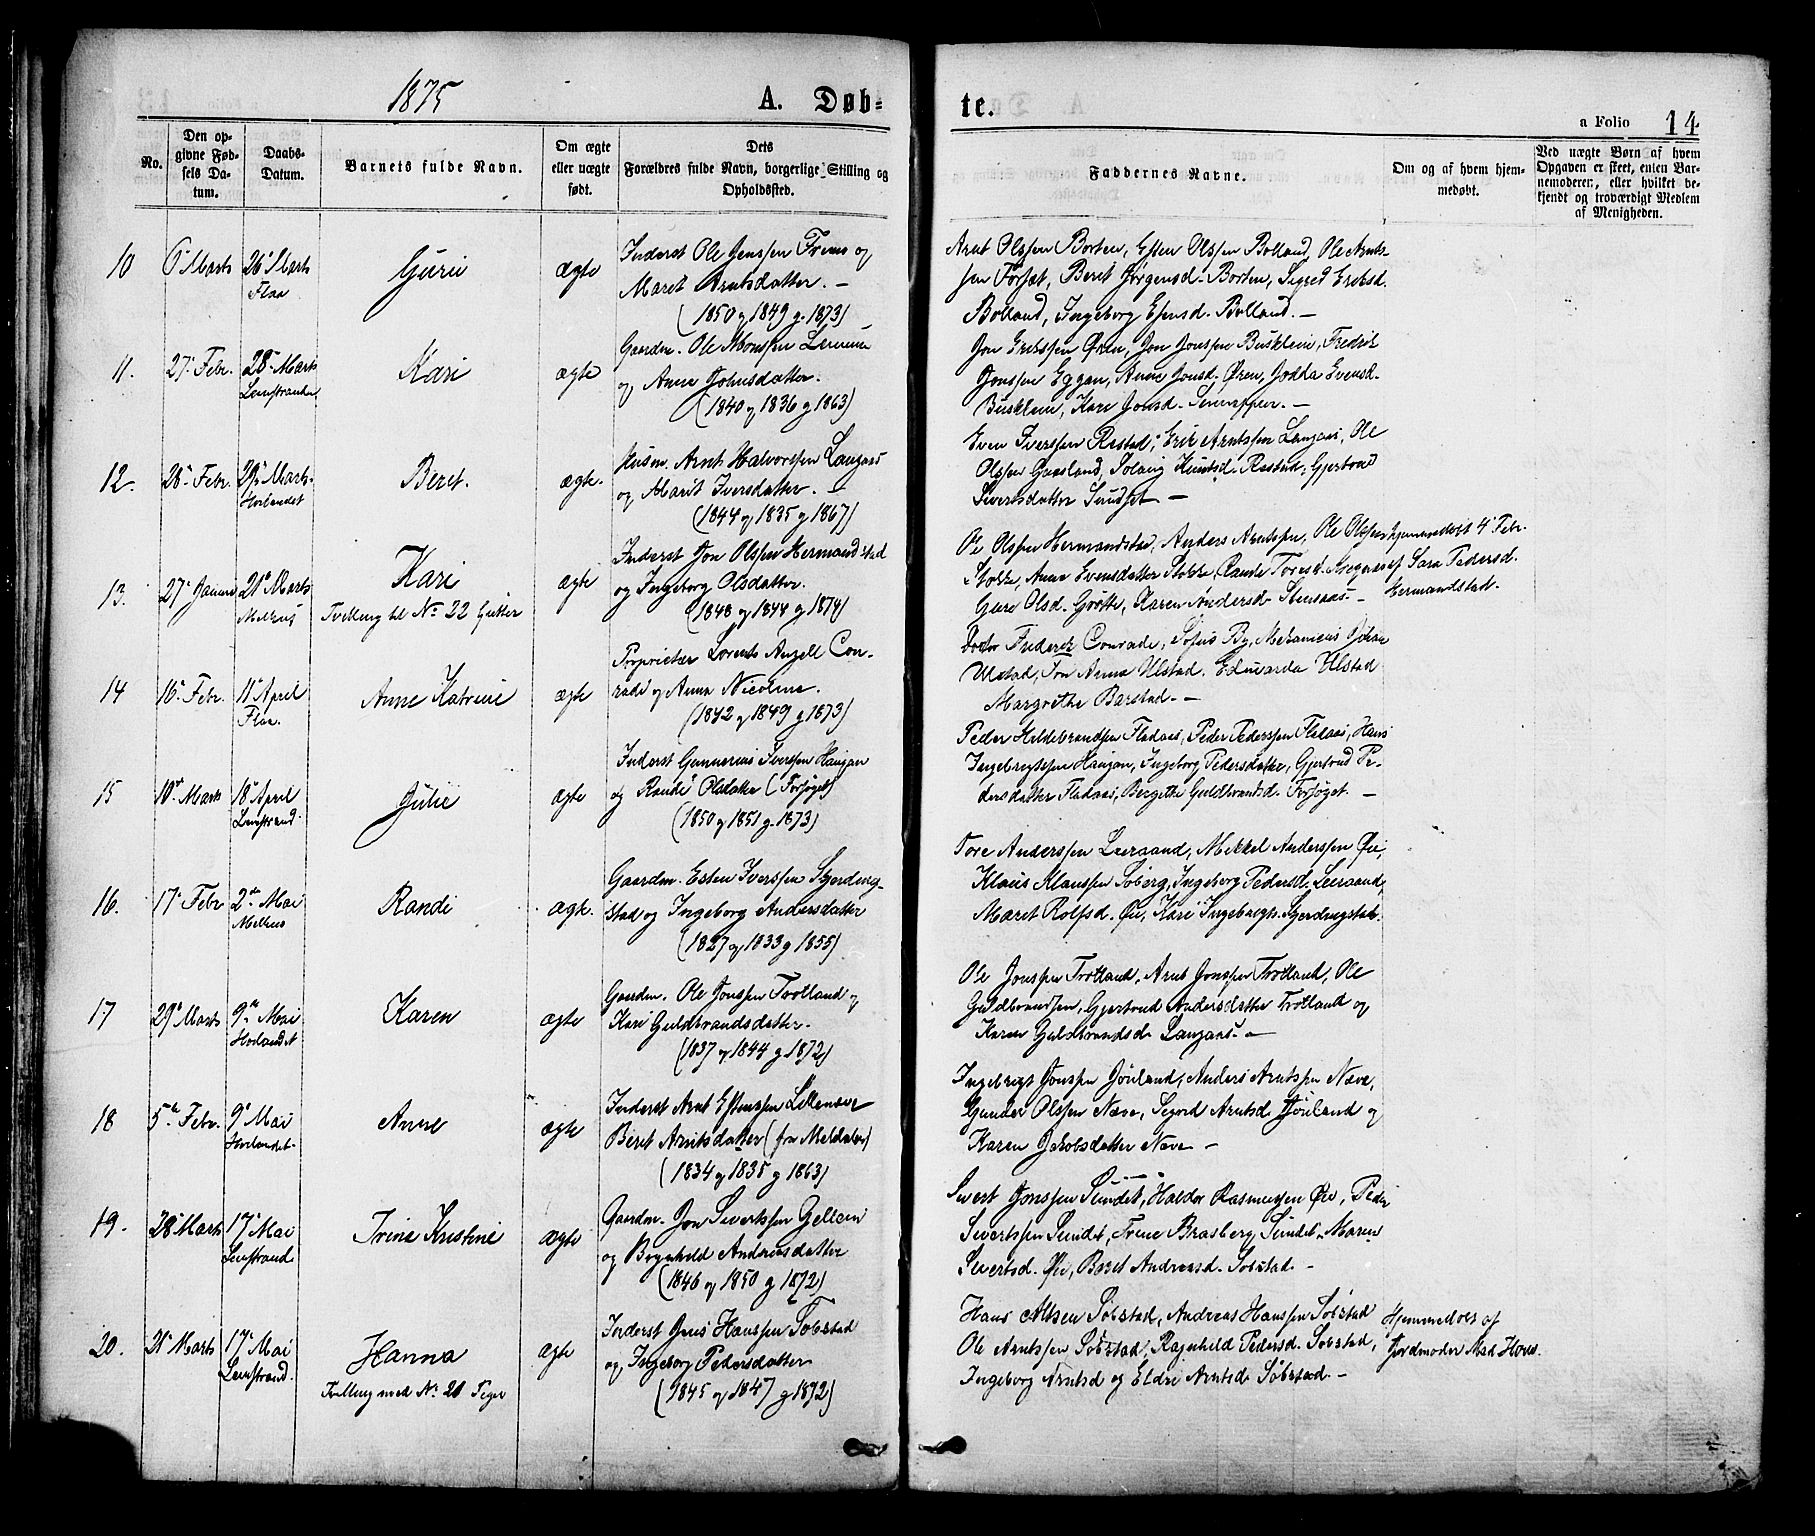 1875
A. Døb-
te.
a Folio 14
No.
Den op-
givne Fød-
sels Da-
tum.
Daabs-
Datum.
Barnets fulde Navn.
Om ægte
eller uægte
født.
Dets
Forældres fulde Navn, borgerlige Stilling og
Opholdssted.
Faddernes Navne.
Om og af hvem hjem-
medøbt.
Ved uægte Børn af hvem
Opgaven er skeet, enten Bar-
nemoderen, eller hvilket be-
kjendt og troværdigt Medlem
af Menigheden.
10
6' Marts
26' Marts
Flaa
Guru
ægte
Inderst Ole Jenssen Frems og
Marit Arntsdatter. —
(1850 og 1849 g. 1873)
Arnt Olssen Borten, Esten Olssen Bolland, Ole Arnts-
sen Forset, Berit Jørgensd. Borten, Sigrid Eriksd.
Bolland, Ingeborg Esensd. Bolland. —
11.
27' Febr.
28' Marts
Leinstranden
Kari
ægte
Gaardm. Ole Monssen
og Anne Johnsdatter.
(1840 og 1836 g 1863)
Jon Erikssen Øren, Jon Jonssen Busklein, Fredrik
Jonssen Eggan, Anne Jonsd. Øren, Jodda Evensd.
Busklein, Kari Jonsd. —
12.
28' Febr.
29' Marts.
Horlandet
Beret.
ægte.
Husm. Arnt Halvorssen Langaas
og Marit Iversdatter. —
(1844 og 1835 g 1867)
Even Iverssen Rostad, Erik Arntssen Langaas, Ole
Olssen Gaasland, Solvig Knutsd. Rostad, Gjertrud
Sivertsdatter —
13.
27' Januar
21' Marts
Melhus
Kari
Tvilling til No 22 Gutter
ægte
Inderst Jon Olssen Hermandstad
og Ingeborg Olsdatter.
(1848 og 1844 g 1874)
Ole Olssen Hermandstad, Anders Arntssen, Ole Olssen
Stokke, Anne Evensdatter Stokke, Randi Toresd.
Guru Olsd. Karen Andersd. Stensaas. —
hjemmedøbt 4' Febr.
af Sara Pedersd.
Hermandstad.
14
16' Febr.
11' April
Flaa.
Anne Katrine
ægte
Proprietær Lorents Angell Con-
radi og Anna Nicoline.
(1842 og 1849 g 1873)
Doctor Frederik Conrade, Sofus By, Mekanicus Johan
Ulstad, Anna Ulstad, Eduarda Ulstad
Margrethe Barstad. —
15
10' Marts
18' April
Leinstrand.
Julie
ægte
Inderst Gunnerius Iverssen Haugan
og Randi Olsdatter (Forsøget)
(1850 og 1851 g. 1873)
Peder Hildebrandsen Fladaas, Peder Pederssen Fladaas, Hans
Ingebrigtssen Haugan, Ingeborg Pedersdatter, Gjertrud Pe-
dersdatter Fladaas, Bergithe Guldbrandsd. Forsøget. —
16.
17' Febr
2den Mai
Melhus
Randi
ægte.
Gaardm. Esten Iverssen Skjerding-
stad og Ingeborg Andersdatter
(1827 og 1833 g 1855)
Tore Anderssen Leeraand, Mikkel Anderssen Øie,
Klaus Klaussen Søberg, Ingeborg Pedersd. Leeraand,
Maret Rolfsd. Øie, Kari Ingebrigts. Skjerdingstad.
17
29' Marts
9de Mai
Hølandet
Karen
ægte
Gaardm. Ole Jonssen Trøtland og
Kari Guldbrandsdatter.
(1837 og 1844 g 1872)
Ole Jonssen Trøtland, Arnt Jonssen Trøtland, Ole
Guldbrandsen, Gjertrud Andersdatter Trøtland og
Karen Guldbrandsd. Langaas. —
18
5te Febr.
9' Mai
Hølandet.
Anne
ægte
Inderst Arnt Estenssen
Beret Arntsdatter (fra Meldalen)
(1834 og 1835 g 1863)
Ingebrigt Jonssen Jøuland, Anders Arntssen Næve,
Gunder Olssen Næve, Sigrid Arntsd. Jøuland og
Karen Jakobsdatter Næve —
19.
28' Marts
17' Mai
Leinstrand.
Trine Kristine
ægte
Gaardm. Jon Sivertssen
og Brynhild Andreasdatter
(1846 og 1850 g 1872)
Sivert Jonssen Sundet, Haldor Rasmussen Øie, Peder
Sivertssen Sundet, Trine Brasberg, Sundet, Maren
Sivertsd. Øie, Beret Andreasd. Sobstad. —
20.
21' Marts
17' Mai
Leinstrand.
Hanna
Tvilling med No 21 Piger
ægte
Inderst Hanssen Sobstad
og Ingeborg Pedersdatter
(1845 og 1847 g 1872)
Hans Sobstad, Andreas Hanssen Sobstad
Ole Arntssen Sobstad, Ragnhild Pedersd. Sobstad,
Ingeborg Arntsd og Eldri Arntsd. Sobstad. —
Hjemmedøbt af
Jordmoder Mad. Hovs.